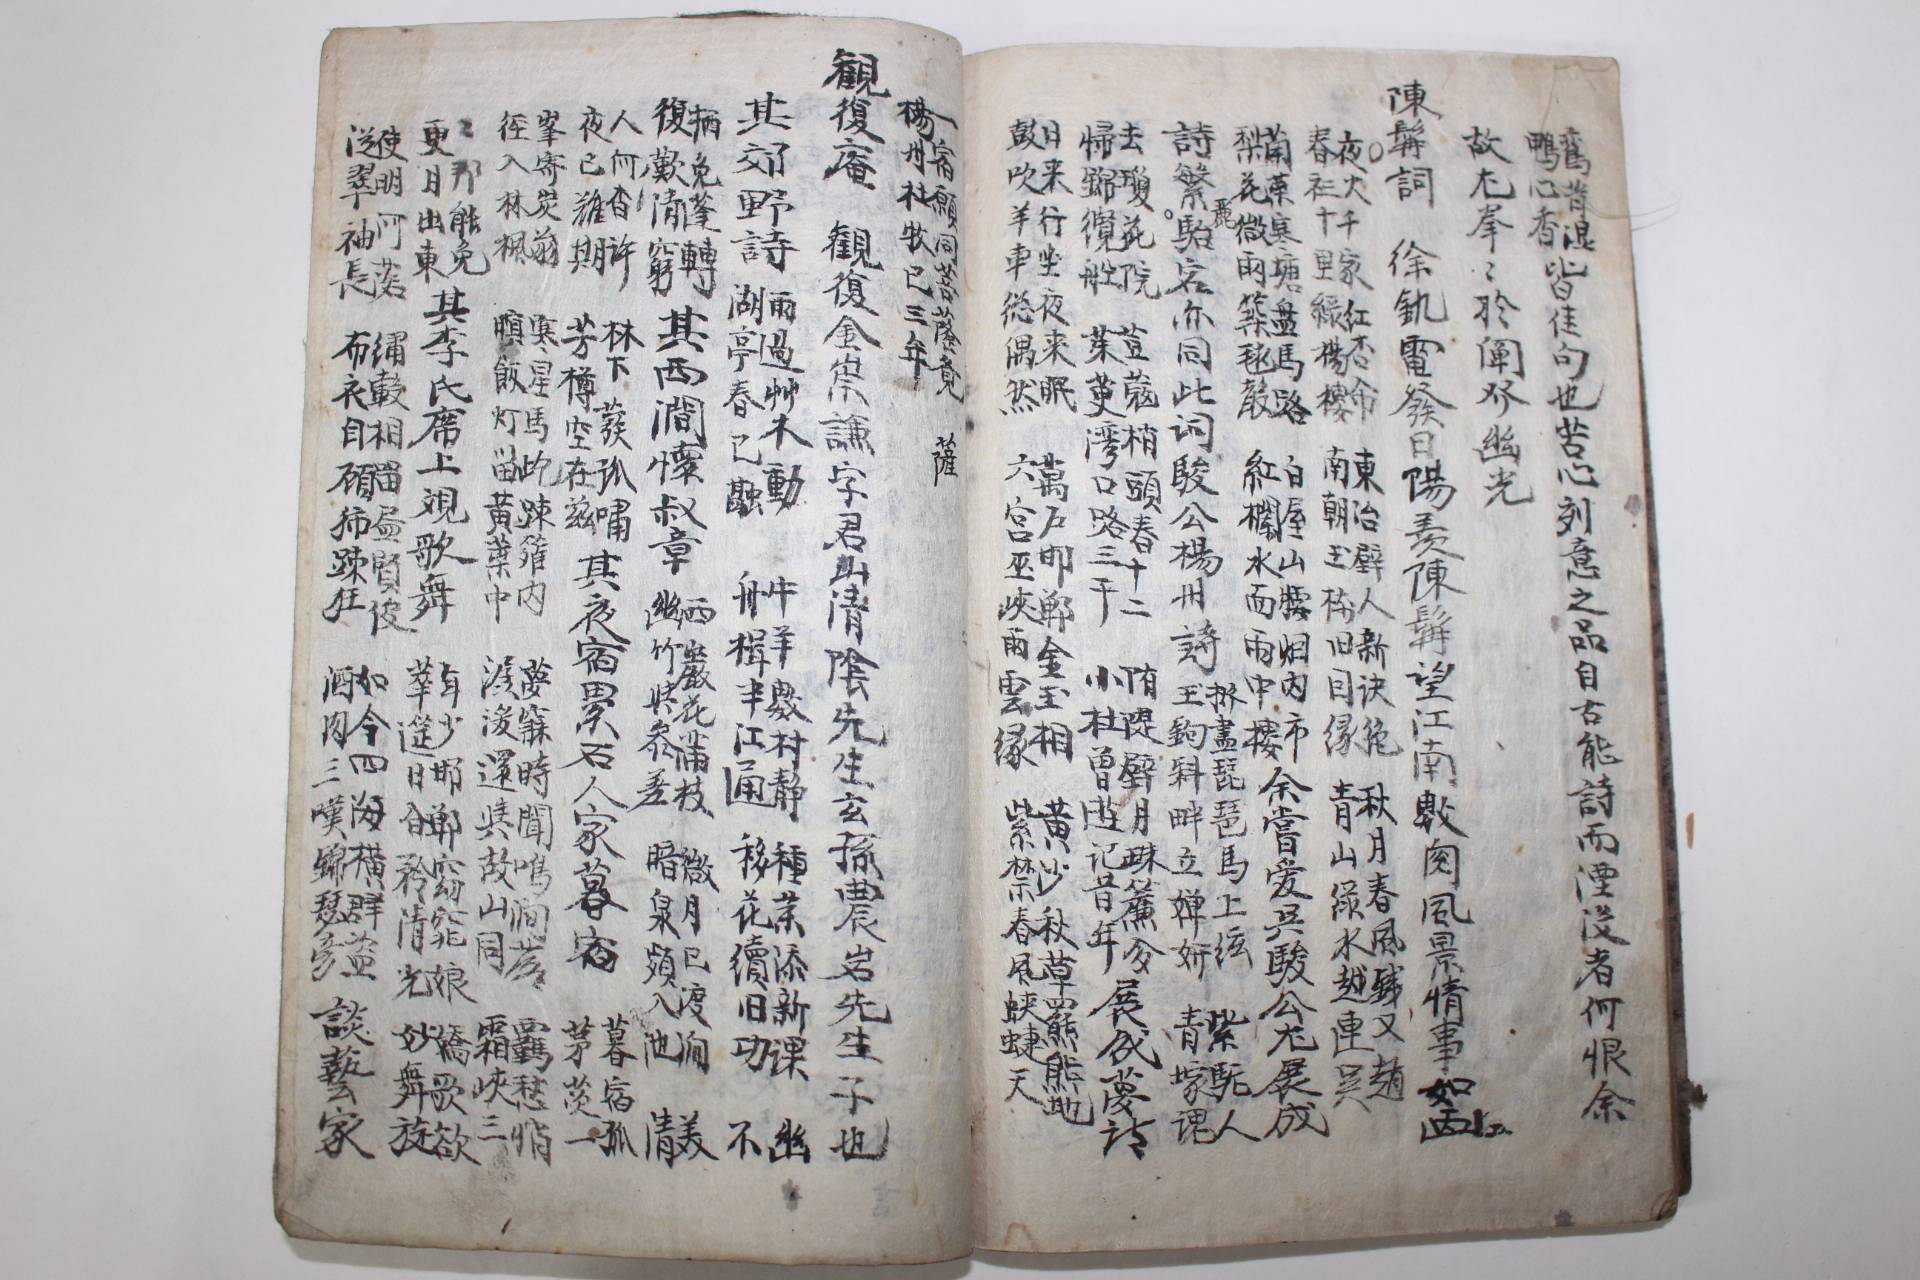 舊昔混
鴨心香皆佳句也苦心刻意之品自古能詩而湮沒者何恨余
故尤拳々於闡發幽光
陳髯詞　徐釚電發曰陽羨陳髯望江南數闋風景情事如画
夜火千家紅杏
春社十里綠楊樓
東冶壁人新訣絶
南朝玉樹旧因緣
秋月春風錢又趙
青山綠水越連吳
菊藥寒塘盤馬路
梨花微雨築毬毅
白屋山牆烟內市
紅欄水面雨中樓
余嘗愛吳駿公尤展成
詩繁駘宕亦同此词駿公楊州詩
麗
撥盡琵琶馬上絃
玉鉤斜畔立嬋妍
紫駝人
青塚魂
去瓊花院
帰錦纜舡
荳蔻梢頭春十二
茱萸湾口路三千
隋堤壁月珠簾夕
小杜曾遊记昔年
展成夢詩
日来行坐夜来眠
鼓吹羊車総偶然
萬戶邯鄲金玉相
六宮巫峽雨雲緣
黄沙秋草羆熊地
紫禁春風蛺蝶天
一宿願同菩薩竟
楊州杜牧已三年
薩
觀復庵　觀復金崇謙字君山清陰先生玄孫農岩先生子也
其郊野詩
雨過艸木動
湖亭春已融
牛羊數村静
舟楫半江通
種菜添新課
移花續旧功
幽
不
栖免蓬轉
復歎清窮
其西澗懷叔章
西巖花滿枝
幽竹共參差
微月已渡澗
暗泉頻入池
美
清
人何杳許
夜已難期
林下發孤嘯
芳樽空在茲
其夜宿累石人家暮宿
暮宿孤
茅茨一
峯寄炭翁
徑入林楓
寒星馬向踈籬內
暝飯灯留黄葉中
夢寐時聞鳴澗落
淺深還與故山同
羈愁悄
霜峽三
々那能免
更月出東
其李氏席上覌歌舞
年少邯鄲窈窕娘
華筵日合矜清光
嬌歌欲
妙舞旋
使明河落
從翠袖長
繡轂相留盡賢俊
布衣自顧拂踈狂
如今四海橫群盜
酒肉三嘆錦瑟彦
談藝家